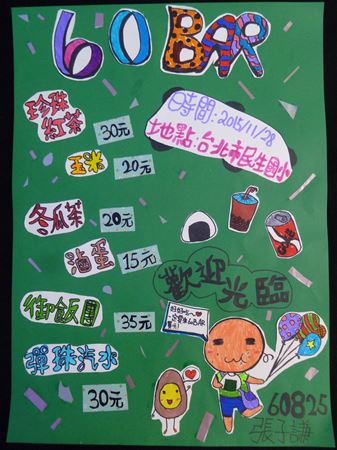 60 BAR
珍珠
紅茶
30元
時間:2015/11/28
地點:台北市民生國小
玉米
20元
冬瓜茶
20元
滷蛋
15元
歡迎
光臨
御飯團
35元
彈珠汽水
30元
60825
張子謙